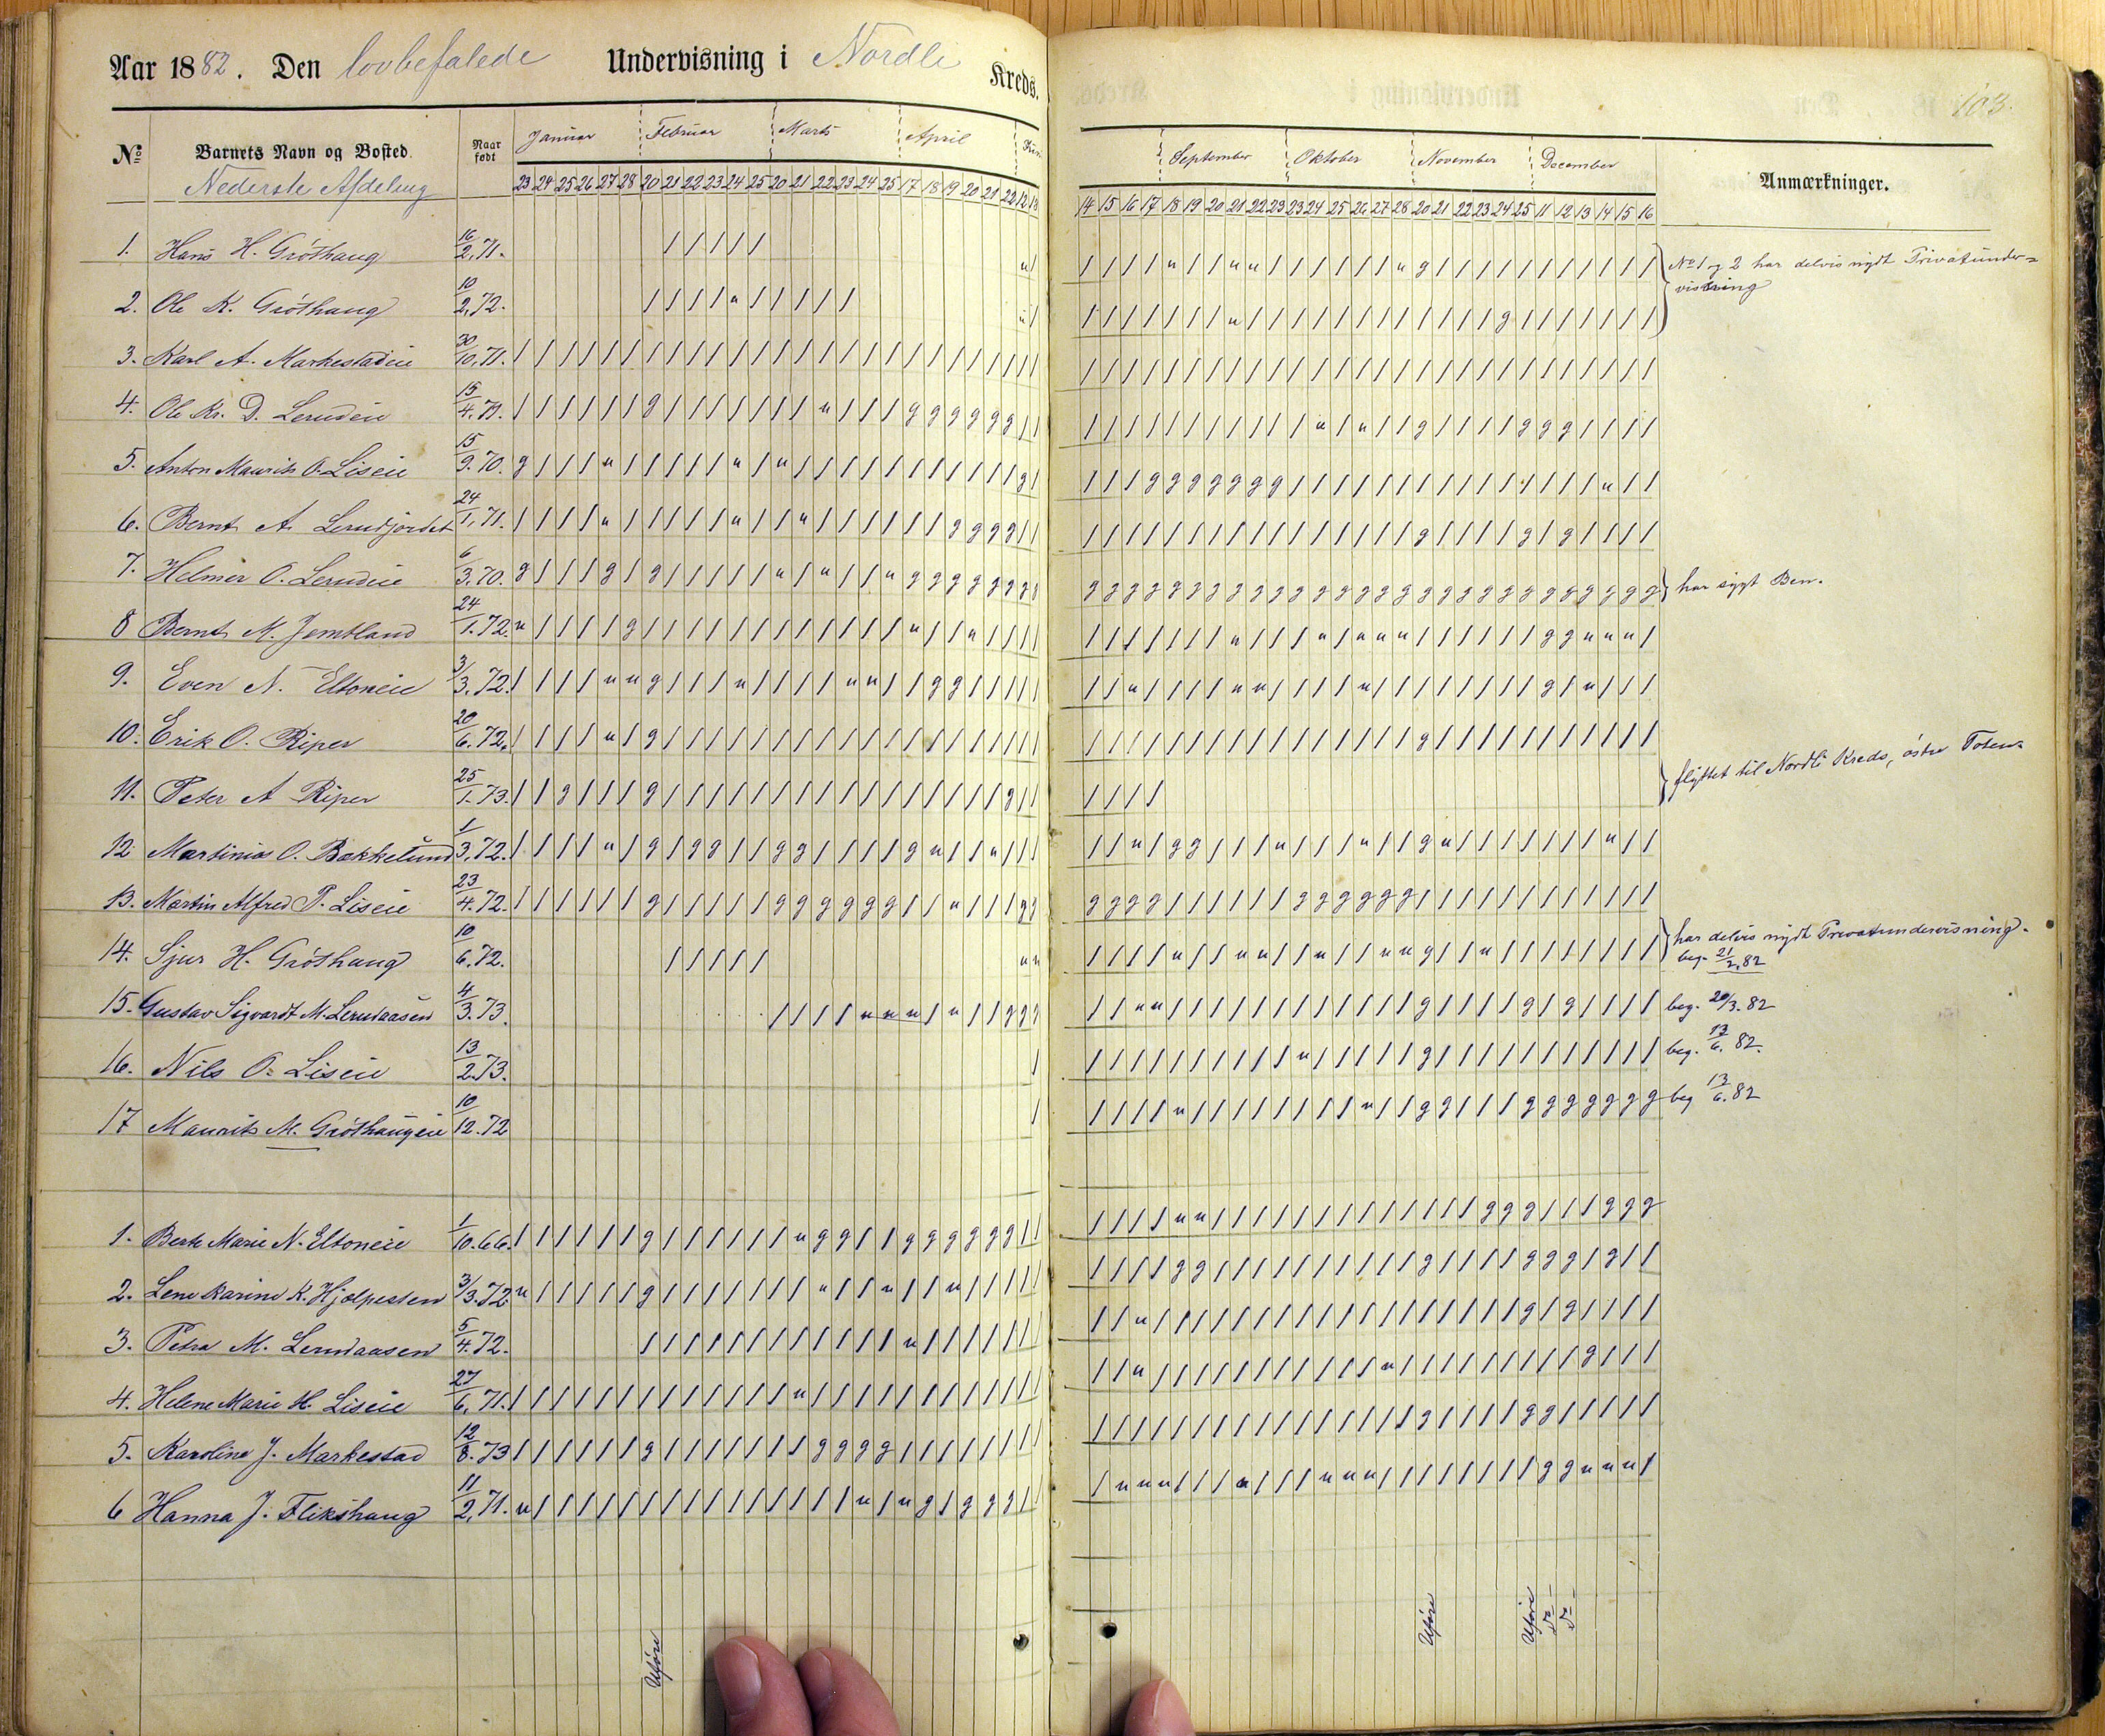 Aar 1882. Den lovbefalede Undervisning i Nordli Kreds.
103.
No Barnets Navn og Bosted. Naar født Januar Februar Marts April Juni September Oktober November December Anmærkninger.
Nederste Afdeling 23 24 25 26 27 28 20 21 22 23 24 25 20 21 22 23 24 25 17 18 19 20 21 22 12 13 14 15 16 17 18 19 20 21 22 23 23 24 25 26 27 28 20 21 22 23 24 25 11 12 13 14 15 16
1. Hans H. Gröthaug 16/2. 71. No 1 og 2 har delvis nydt Privatunder=
visning
2. Ole K. Gröthaug 10/2. 72.
3. Karl A. Markestadeie 30/10. 71.
4. Ole Kr. D. Lerudeie 15/4. 71.
5. Anton Maurits O. Liseie 15/9. 70.
6. Bernt A. Lerudjordet 24/1. 71.
7. Helmer O. Lerudeie 6/3. 70. har sygt Ben.
8 Bernt M. Jemtland 24/1. 72.
9. Even N. Eltoneie 3/3. 72.
10. Erik O. Riper 20/6. 72.
11. Peter A Riper 25/1. 73. flyttet til Nordli Kreds, östre Toten
12 Martinius O. Bækkelund 1/3. 72.
13. Martin Alfred P. Liseie 23/4. 72.
14. Sjur H. Gröthaug 10/6. 72. har delvis nydt Privatundervisning.
beg. 21/2. 82
15. Gustav Sigvardt M. Lerudaasen 4/3. 73. beg. 20/3. 82
16. Nils O. Liseie 13/2. 73. beg. 13/6. 82.
17 Maurits M. Gröthaugeie 10/12. 72 beg 13/6. 82
1. Berte Marie N. Eltoneie 1/10. 66.
2. Lene Karine K. Hjelpesten 3/3. 72
3. Petra M. Lerudaasen 5/4. 72.
4. Helene Marie H. Liseie 27/6. 71.
5. Karoline J. Markestad 12/8. 73
6 Hanna J. Flikshaug 11/2. 71.
Uføre
Uføre
Uføre
Do
Do